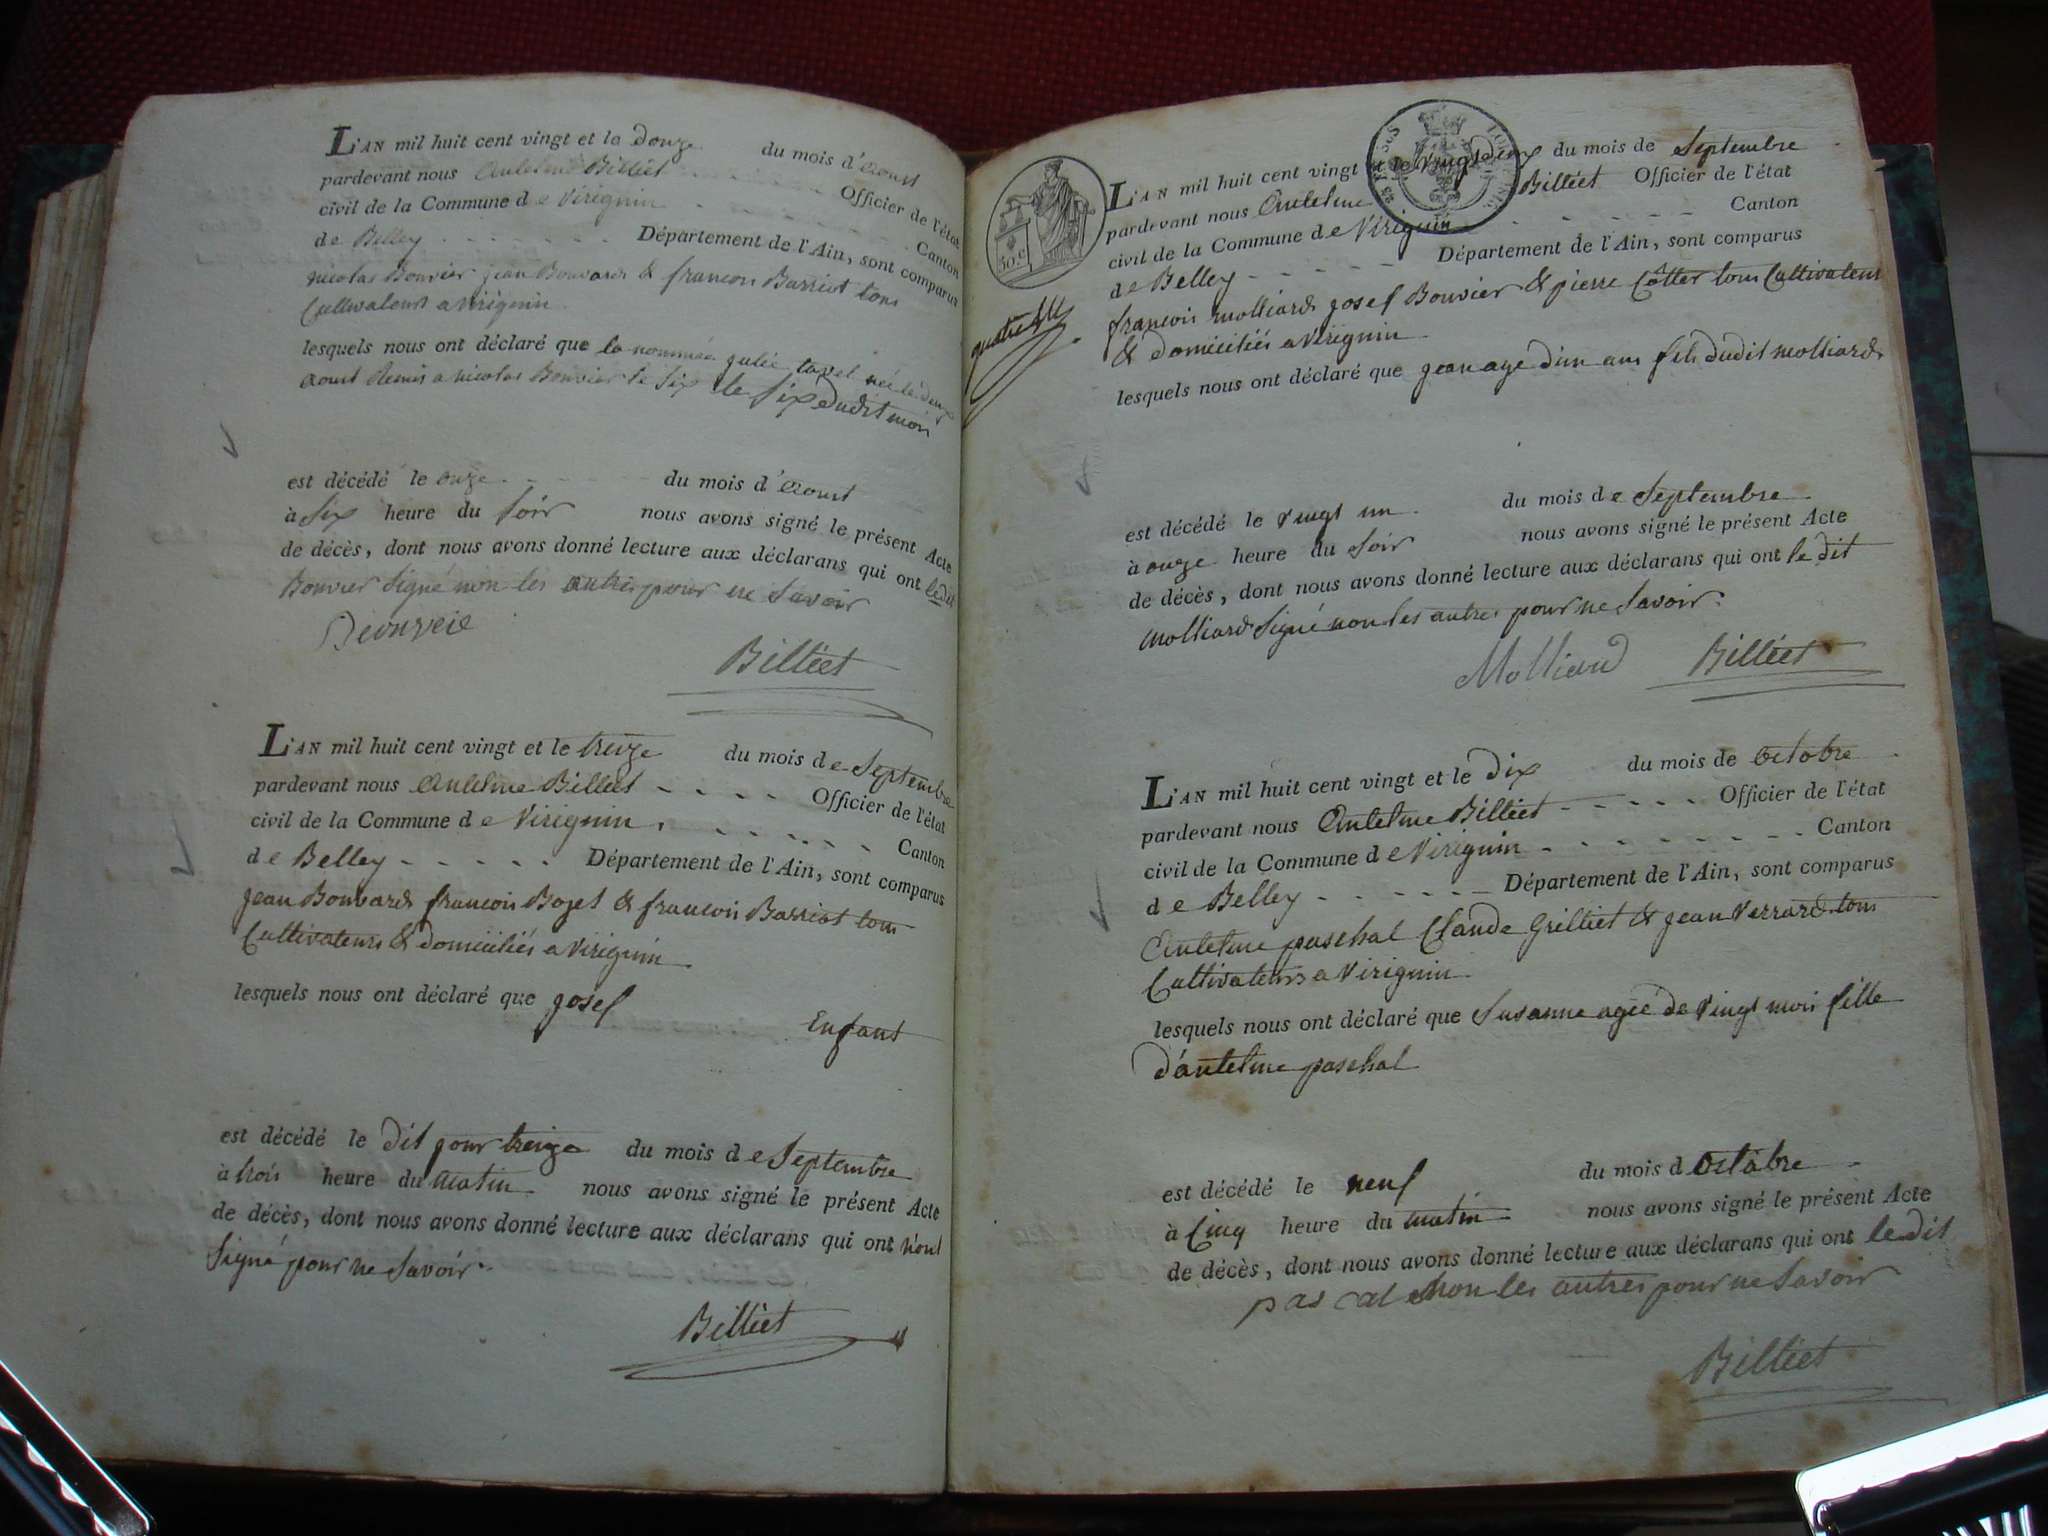 L'AN mil huit cent vingt et la douze du mois d'aoust
pardevant nous Antelme Billiet Officier de l'état
civil de la Commune de Virignin Canton
de Belley Département de l'Ain, sont comparus
nicolas Bouvier jean Bouvard & francois Barriot tous
Cultivateurs a virignin
lesquels nous ont déclaré que la nommée julie tavel née le deux
aoust Remis a nicolas Bouvier le six le six dudit moi
est décédé le onze du mois d'aoust
à six heure du soir nous avons signé le présent Acte
de décès, dont nous avons donné lecture aux déclarans qui ont ledit
Bouvier signé non les autres pour ne savoir
Billiet
L'AN mil huit cent vingt et le treize du mois de Septembre
pardevant nous Antelme Billiet Officier de l'état
civil de la Commune de Virignin Canton
de Belley Département de l'Ain, sont comparus
jean Bouvard francois Bozet & francois Barriot tous
Cultivateurs & domiciliés a virignin
lesquels nous ont déclaré que josef
Enfant
est décédé le dit jour treize du mois de Septembre
à trois heure du matin nous avons signé le présent Acte
de décès, dont nous avons donné lecture aux déclarans qui ont n'ont
signé pour ne savoir
Billiet
50.c
L'AN mil huit cent vingt et le vingt deux du mois de Septembre
pardevant nous Antelme Billiet Officier de l'état
civil de la Commune de Virignin Canton
de Belley Département de l'Ain, sont comparus
francois molliard josef Bouvier & pierre Côtter tous Cultivateurs
& domiciliés a virignin
lesquels nous ont déclaré que jean age d'un ans fils dudit molliard
est décédé le vingt un du mois de Septembre
à onze heure du soir nous avons signé le présent Acte
de décès, dont nous avons donné lecture aux déclarans qui ont le dit
molliard signé non les autres pour ne savoir.
Molliard Billiet
L'AN mil huit cent vingt et le dix du mois de octobre
pardevant nous Antelme Billiet Officier de l'état
civil de la Commune de Virignin Canton
de Belley Département de l'Ain, sont comparus
Antelme paschal Claude Grilliet & jean Verrard tous
Cultivateurs a virignin
lesquels nous ont déclaré que Susanne agée de vingt mois fille
d'antelme paschal
est décédé le neuf du mois d octobre
à Cinq heure du matin nous avons signé le présent Acte
de décès, dont nous avons donné lecture aux déclarans qui ont le dit
pascal non les autres pour ne savoir
Billiet